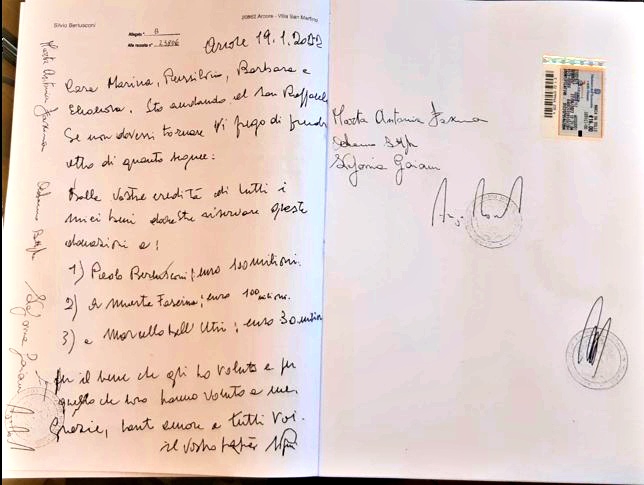 Silvio Berlusconi
20862 Arcore - Villa San Martino
Allegato " B
Alla raccolta n° 23806
Arcore 19.1.2022
Cara Marina, Pier Silvio, Barbara e
Eleonora. Sto andando al San Raffaele
Se non dovessi tornare Vi prego di prendere
atto di quanto segue:
Dalle vostre eredità di tutti i
miei beni dovreste riservare queste
donazioni a:
1) Paolo Berlusconi; euro 100 milioni.
2) a Marta Fascina; euro 100 milioni.
3) a Marcello Dell'Utri; euro 30 milioni
per il bene che gli ho voluto e per
quello che loro hanno voluto a me.
Grazie, tanto amore a tutti voi.
il vostro papà
Marta Antonia Fascina
Marta Antonia Fascina